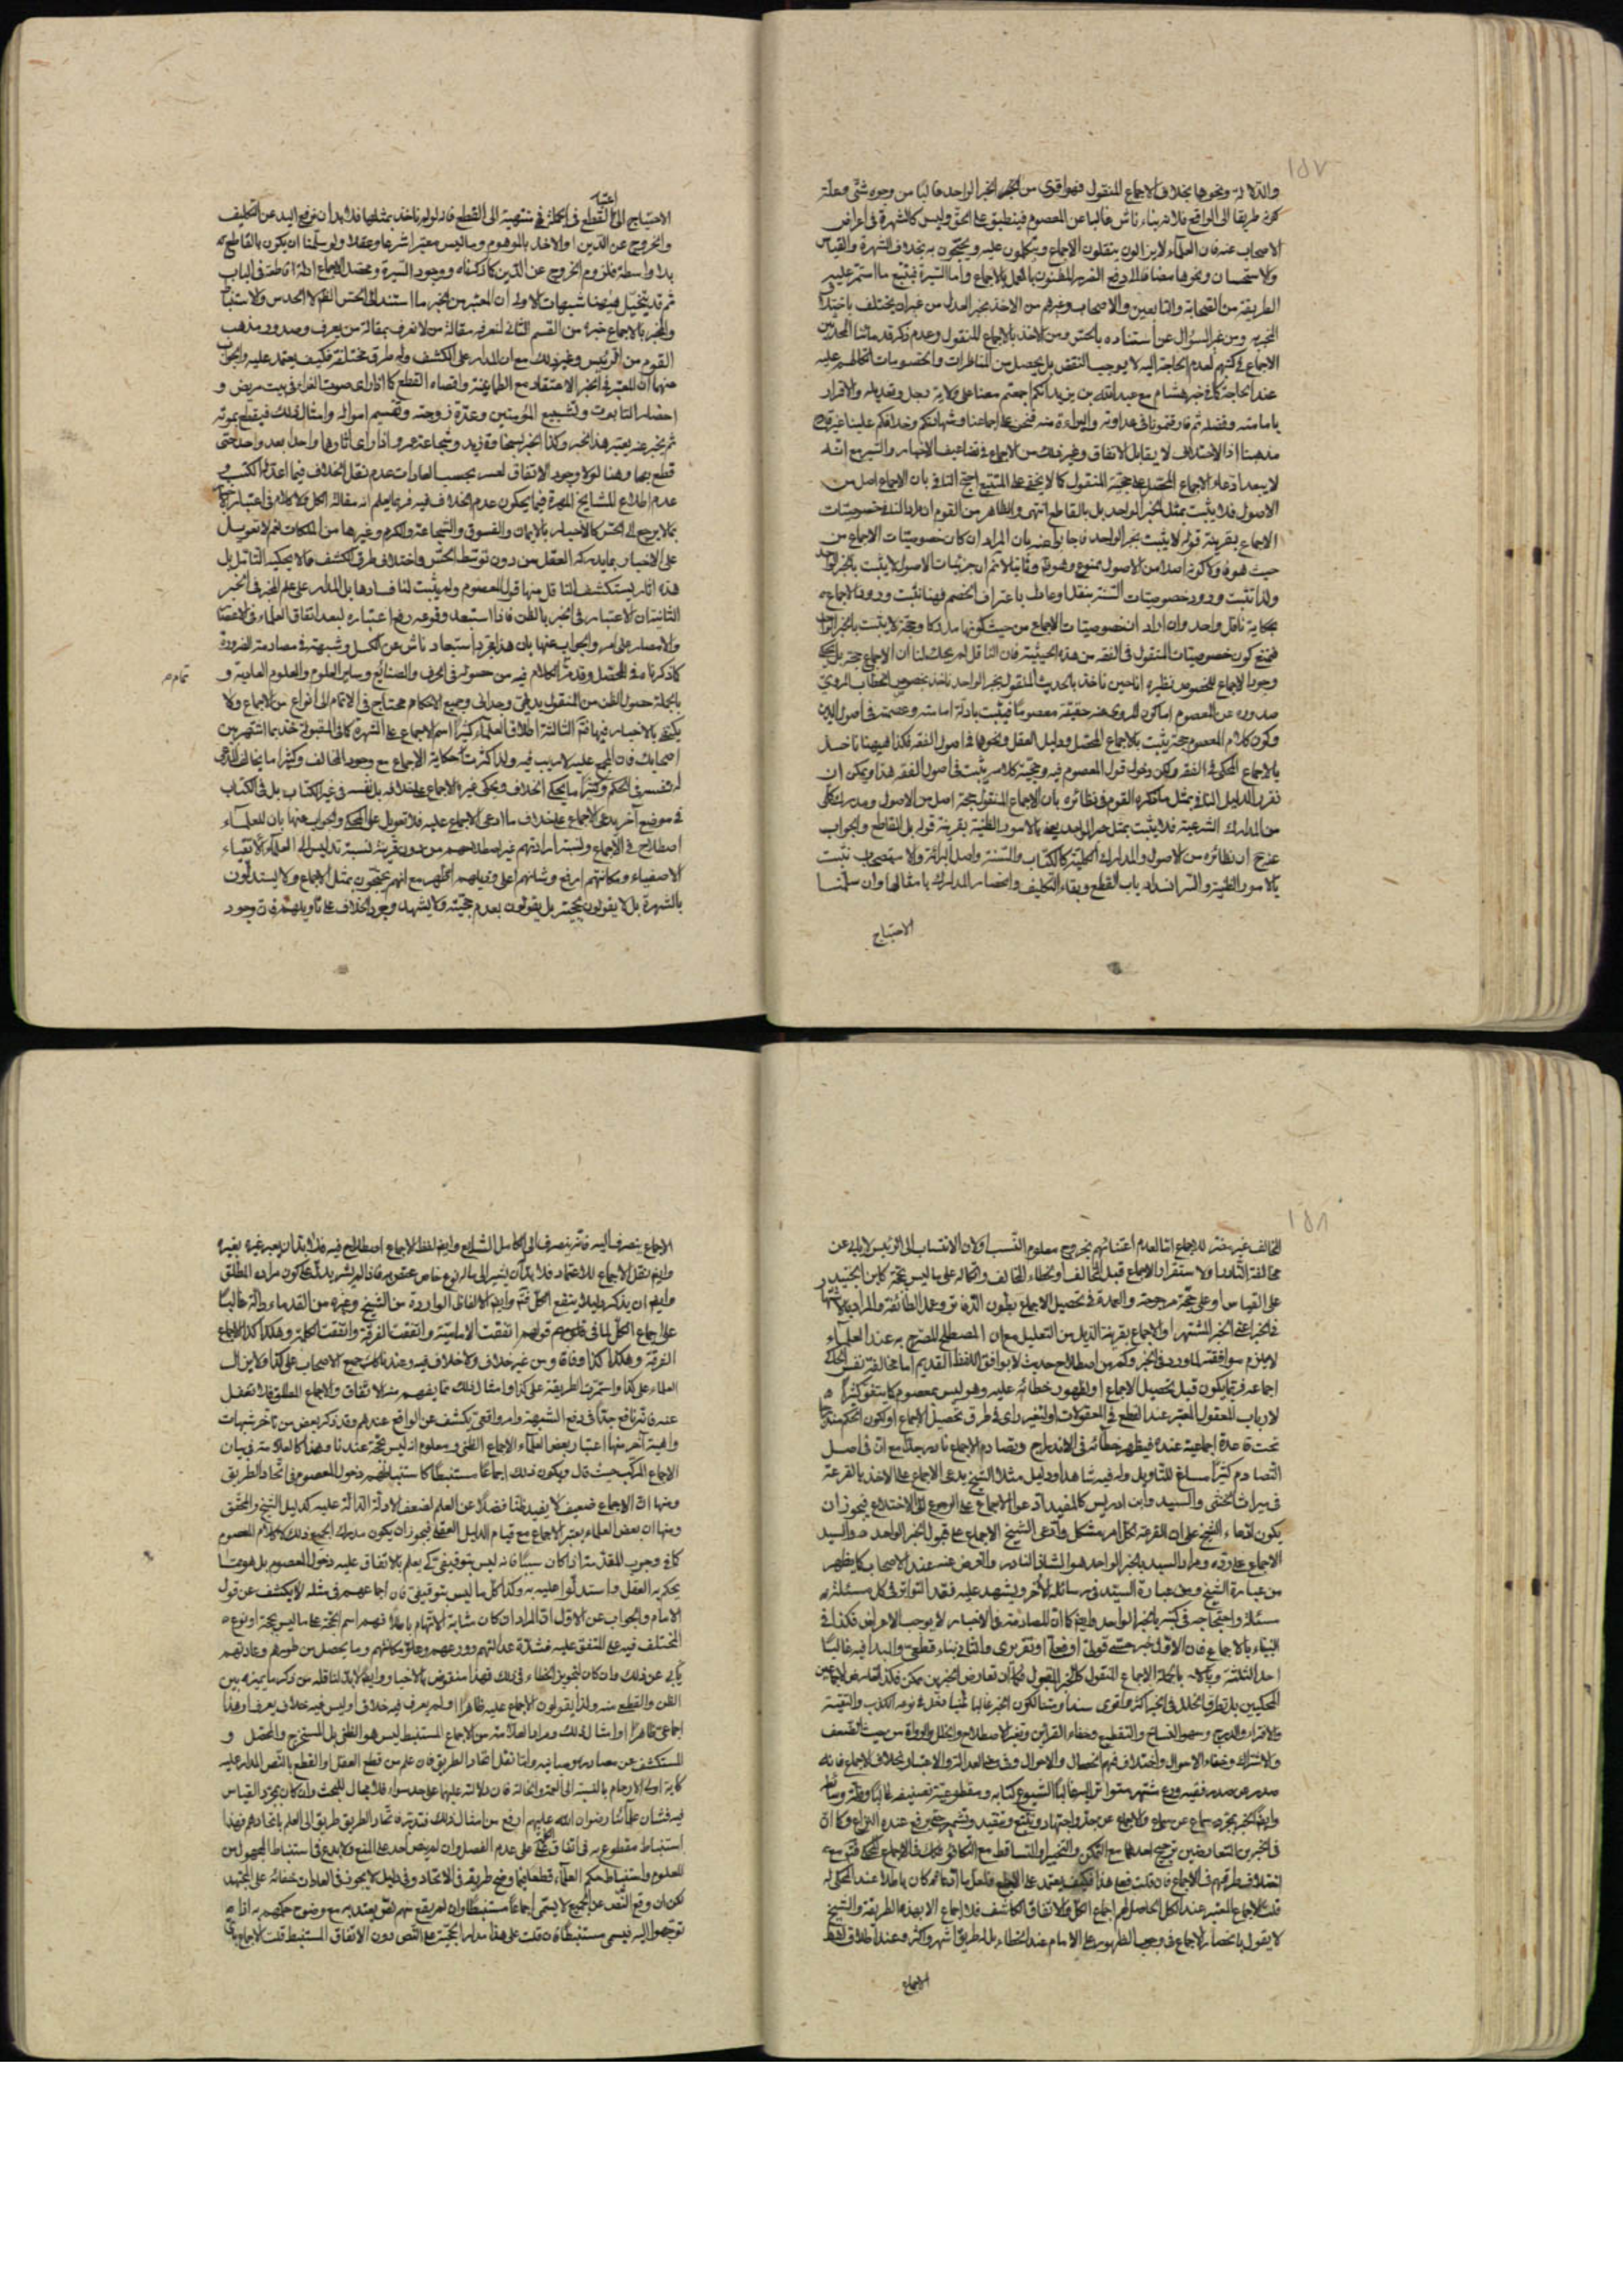 ١٥٧
والدلالة ونحوها بخلاف الاجماع المنقول فهو اقوى من الخبر الواحد غالبا من وجوه شتى وعلّة
كونه طريقا الى الواقع فلانه بناء ناش غالبا عن المعصوم فينطبق على الحق وليس كالشهرة في اعراض
الاصحاب عنه فان العلماء لا يزالون ينقلون الاجماع ويتكلمون عليه ويحتجون به بخلاف الشهرة والقياس
والاستحسان ونحوها مضافا الى دفع الضرر المظنون بالعمل بالاجماع واما السيرة فبتتبع ما استمر عليه
الطريقة من الصحابة والتابعين والاصحاب وغيرهم من الاخذ بخبر العدل من غير ان يختلف باختلاف
المخبر به ومن غير السؤال عن استناده بالحس ومن الاخذ بالاجماع المنقول وعدم ذكر قدمائنا المحدثين
الاجماع في كتبهم لعدم الحاجة اليه لا يوجب النقض بل يحصل من المناظرات والخصومات اتكالهم عليه
عند الحاجة كما في خبر هشام مع عبد الله بن يزيد انكم اجمعتم معنا على ولاية رجل وتعديله والاقرار
بامامته وفضله ثم فارقتمونا في عداوته والبراءة منه فنحن على اجماعنا وشهادتكم وخلافكم علينا غير قادح
مذهبنا اذ الاختلاف لا يقابل الاتفاق وغير ذلك من الاجماع في تضاعيف الاخبار والسير مع انه
لا يبعد ادعاء الاجماع المحصل على حجية المنقول كما لا يخفى على المتتبع احتج النافي بان الاجماع اصل من
الاصول فلا يثبت بمثل الخبر الواحد بل بالقاطع انتهى والظاهر من القوم ان مراد النافي خصوصيات
الاجماع بقرينة قوله لا يثبت بخبر الواحد فاجابوا عنه بان المراد ان كان خصوصيات الاجماع من
حيث هو هو وكونه اصلا من الاصول ممنوع وهو ثم وثانيا لا ثم ان جزئيات الاصول لا يثبت بالخبر الواحد
ولذا تثبت ورود خصوصيات السنة بنقل واحد باعتراف الخصم فهنا نثبت ورود الاجماع
بحكاية ناقل واحد وان اراد ان خصوصيات الاجماع من حيث كونها مدركا وحجة لا يثبت بالخبر الواحد
فيمنع كون خصوصيات المنقول في الفقه من هذه الحيثية فان الناقل لم يحك لنا ان الاجماع حجة بل يحكى
وجود الاجماع المخصوص نظيره انا حين ناخذ بالحديث المنقول بخبر الواحد ناخذ بخصوص الخطاب المروي
صدوره عن المعصوم اما كون المروى عنه حقيقة معصوما فيثبت بادلة امامته وعصمته في اصول الدين
وكون كلام المعصوم حجة يثبت بالاجماع المحصل ودليل العقل ونحوها في اصول الفقه فكذا فيهنا ناخذ
بالاجماع المحكى في الفقه ولكن دخول قول المعصوم فيه وحجية كلامه يثبت في اصول الفقه هذا ويمكن ان
نقرر الدليل النافي بمثل ما ذكره القوم في نظائره بان الاجماع المنقول حجة اصل من الاصول ومدرك كلى
من المدارك الشرعية فلا يثبت بمثل خبر الواحد يعني بالامور الظنية بقرينة قوله بل القاطع والجواب
عنه ان نظائره من الاصول والمدارك الكلية كالكتاب والسنة واصل البرائة والاستصحاب تثبت
بالامور الظنية والسر انسداد باب القطع وبقاء التكليف وانحصار المدارك بامثالها وان سلمنا
الاحتياج
اعتبار
الاحتياج الى القطع في الجملة فهي منتهية الى القطع فانه لو لم ناخذ بمثلها فلا بد ان نرفع اليد عن التكليف
والخروج عن الدين او الاخذ بالموهوم وما ليس معتبرا شرعا وعقلا ولو سلمنا ان يكون بالقاطع
بلا واسطة فلزوم الخروج عن الدين كما ذكرناه ووجود السيرة ومحصل الاجماع ادلة قاطعة في الباب
ثم قد يتخيل فيهنا شبهات الاولى ان المعتبر من الخبر ما استند الى الحس الظاهر لا الحدس والاستنباط
والمخبر بالاجماع خبره من القسم الثاني لتعرف مقالة من لا نعرف بمقالة من يعرف وصدور مذهب
القوم من الرئيس وغير ذلك مع ان المدار على الكشف وله طرق مختلفة فكيف يعتمد عليه والجواب
عنها ان المعتبر في الخبر الاعتقاد مع الطمانينة واقتضاء القطع كما اذا راى صوت الفراء في بيت مريض و
احضار التابوت وتشييع المؤمنين وعدة زوجته وتقسيم امواله وامثال ذلك فيقطع بموته
ثم يخبر عنه يعتبر هذا الخبر وكذا الخبر بسخاوة زيد وشجاعة عمرو اذا راى آثارها واحدا بعد واحد حتى
قطع بها وهنا لولا وجود الاتفاق لعسر بحسب العادات عدم نقل الخلاف فيما اعد له الكتب و
عدم اطلاع المشايخ المهرة فيما يحكون عدم الخلاف فيه فربما يعلم انه مقالة الكل ولا كلام في اعتبار الاخبار
بما لا يرجع الى الحس كالاخبار بالايمان والفسوق والشجاعة والكرم وغيرها من الملكات نعم لا تعويل
على الاخبار بما يدركه العقل من دون توسط الحس واختلاف طرق الكشف فما لا يحكيه الناقل بل
هذه آثار يستكشف الناقل منها قول المعصوم ولم يثبت لنا فسادها بل المدار على علم المخبر في الخبر
الثانية ان الاعتبار في الخبر بالظن فاذا استبعد وقوعه رفع اعتباره لبعد اتفاق العلماء في الاعصار
والامصار على امر والجواب عنها بان هذا مجرد استبعاد ناش عن الكسل وشبهة في مصادمة الضرورة
كما ذكرنا في المحصل وقدمنا الكلام فيه من حصوله في الحرف والصنائع وساير العلوم والعلوم العادية و
تمام
بالجملة حصول الظن من المنقول بديهي وجداني وجميع الاحكام محتاج في الاتمام الى انواع من الاجماع ولا
يكتفى بالاخبار فيها فتم الثالثة اطلاق العلماء كثيرا اسم الاجماع على الشهرة كما في المقبولة خذ بما اشتهر بين
اصحابك فان المجمع عليه لا ريب فيه ولذا كثرت حكاية الاجماع مع وجود المخالف وكثيرا ما يخالف المدعى
له نفسه في الحكم وكثيرا ما يحكى الخلاف ويحكى غيره الاجماع على خلافه بل نفسه في غير الكتاب بل في الكتاب
في موضع آخر يدعى الاجماع على خلاف ما ادعى الاجماع عليه فلا تعويل على المحكى والجواب عنها بان للعلماء
اصطلاح في الاجماع ونسبة ارادتهم غير اصطلاحهم من دون قرينة نسبة تدليس الى العلماء الاتقياء
الاصفياء ومكانتهم ارفع وشانهم اعلى وذيلهم اطهر مع انهم يحتجون بمثل الاجماع ولا يستدلون
بالشهرة بل لا يقولون بحجيته بل يقولون بعدم حجيته ولا يشهد وجود الخلاف على تاويلهم فان وجود
١٥٨
المخالف غير مضر للاجماع اما لعدم اعتنائهم بخروج معلوم النسب اولان الانتساب الى الرئيس لا يابى عن
مخالفة النادر اولاستقرار الاجماع قبل المخالف او خطاء المخالف واتكاله على ما ليس بحجة كابن الجنيد
على القياس او على حجة مرجوحة والعمدة في تحصيل الاجماع بطون الدفاتر وعمل الطائفة والمراد
في الخبر اعني الخبر المشتهر او الاجماع بقرينة الذيل من التعليل مع ان المصطلح المصرح به عند العلماء
لا يلزم موافقته لما ورد في الخبر وكم من اصطلاح حديث لا يوافق اللفظ القديم اما مخالفة نفس الحاكي
اجماعه فربما يكون قبل تحصيل الاجماع او لظهور خطائه عليه وهو ليس بمعصوم كما يتفق كثيرا
لارباب العقول المعتبر عند القطع في المعقولات او لتغير راى في طرق تحصيل الاجماع او لكون الحكم مندرجا
تحت قاعدة اجماعية عنده فيظهر خطائه في الاندراج وتصادم الاجماع نادر جدا مع ان في اصل
التصادم كثيرا مساغ للتاويل وله فيه شاهد ودليل مثلا الشيخ يدعى الاجماع على الاخذ بالقرعة
في ميراث الخنثى والسيد وابن ادريس كالمفيد ادعوا الاجماع على الرجوع الى الاضلاع فيجوز ان
يكون ادعاء الشيخ على ان القرعة لكل امر مشكل وادعى الشيخ الاجماع على قبول الخبر الواحد والسيد
الاجماع على رده ومراد السيد بالخبر الواحد هو الشاذ النادر والمعرض عنه عند الاصحاب كما يظهر
من عبارة الشيخ ومن عبارة السيد في رسائله الاخر ويشهد عليه فقد التواتر في كل مسئلة
مسئلة واحتجاجه في كتبه بالخبر الواحد وايضا كما ان المصادمة في الاخبار لا يوجب الاعراض فكذا في
البناء بالاجماع فان الاول خبر حسي قولي او فعلي او تقريري والثاني بناء قطعي والمبدا فيه غالبا
احد الثلثة وبالجملة الاجماع المنقول كالخبر المنقول فكما ان تعارض الخبرين ممكن فكذا تعارض الاجماعين
المحكيين بل تطرق الخلل في الخبر اكثر واقوى سندا ومتنا لكون الخبر غالبا ظنيا دخل فيه نوع الكذب والتقية
والافتراء والدرج وسهو النساخ والتقطيع وخفاء القرائن وتغير الاصطلاح والخلل بالرواة من حيث الضعف
والاشتراك وخفاء الاحوال واختلاف فهم الخصال والاحوال وفي معنى العدالة والاعتبار بخلاف الاجماع فانه
صدر عن صدر فقيه ورع مشتهر متواتر اليه غالبا لشيوع كتابه ومقطوعية تصنيفه غالبا وقلة وسائط
وايضا الخبر بمجرد سماع عن سماع والاجماع عن جد واجتهاد وتتبع وتفقيد وتشمير حين وقع عنده النزاع وكما ان
في الخبرين المتعارضين ترجيح احدهما مع التمكن والتخيير او التساقط مع التكافؤ فكذلك في الاجماع المحكى فتم مع
اختلاف طرقهم في الاجماع فان قلت فمع هذا فكيف يعتمد على الناقل فلعل ما ادعاه كان باطلا عند المحكى له
قلت الاجماع المعتبر عند الكل الحاصل لهم اجماع الكل والاتفاق الكاشف فلا اجماع الا بهذه الطريقة والشيخ
لا يقول بانحصار الاجماع في وجوب الظهور على الامام عند الخطاء بل له طريق اشهر واكثر وعند اطلاق لفظ
الاجماع
الاجماع ينصرف اليه فانه ينصرف الى الكامل الشايع وايضا لفظ الاجماع اصطلاح فيه فلا بد ان يعبر غيره بغيره
وايضا نقل الاجماع للاعتماد فلا بد ان يشير الى ما له نوع خاص عنهم فاذا لم يشر يدل على كون مراده المطلق
وايضا ان يذكر دليلا ينتفع الكل فتم وايضا الالفاظ الواردة من الشيخ وغيره من القدماء دالة غالبا
على اجماع الكل لما في قولهم اتفقت الامامية واتفقت الفرقة واتفقت الكلمة وهكذا كذا الاجماع
الفرقة وهكذا كذا وفاقا ومن غير خلاف ولا خلاف فيه وعندنا كذا جميع الاصحاب على كذا ولا يزال
العلماء على كذا واستمرت الطريقة على كذا وامثال ذلك مما يفهم منه الاتفاق والاجماع المطلق فلا تغفل
عنه فانه نافع جدا في دفع الشبهة وامر واقعي يكشف عن الواقع عندهم وقد ذكر بعض من تاخر شبهات
واهية آخر منها اعتبار بعض العلماء الاجماع الظني ومعلوم انه ليس بحجة عندنا وهذا كالعلامة في بيان
الاجماع المركب حيث قال ويكون ذلك اجماعا مستنبطا كاستنباطهم دخول المعصوم في اتحاد الطريق
ومنها ان الاجماع ضعيف لا يفيد ظنا فضلا عن العلم لضعف الادلة الدالة عليه كدليل الشيخ والمحقق
ومنها ان بعض العلماء يعتبر الاجماع مع قيام الدليل العقلي فيجوز ان يكون مدرك الجميع ذلك لا كلام المعصوم
كما في وجوب المقدمة اذا كان سببا فانه ليس بتوقيفي كى يعلم بالاتفاق عليه دخول المعصوم بل هو مما
يحكم به العقل واستدلوا عليه به وكذا كل ما ليس بتوقيفي فان اجماعهم في مثله لا يكشف عن قول
الامام والجواب عن الاول ان المراد ان كان مشابه الاتهام باطلاقهم اسم الحجة على ما ليس بحجة او نوعه
المختلف فيه على المتفق عليه فشدة عدالتهم وورعهم وعلو مكانتهم وما يحصل من طورهم وعادتهم
يابى عن ذلك وان كان تجويز الخطاء في ذلك فهذا منقوض بالاخبار وايضا لا بد لناقله من ذكر ما يميزه بين
الظن والقطع منه ولذا يقولون الاجماع عليه ظاهرا او لم يعرف فيه خلاف او ليس فيه خلاف يعرف او هذا
اجماعي ظاهرا او امثال ذلك ومراد العلامة من الاجماع المستنبط ليس هو الظني بل المستخرج والمحصل و
المستكشف عن مصادره ومبانيه واما نقل اتحاد الطريق فان علم من قطع العقل او القطع بالنص المدار عليه
كآية اولى الارحام بالنسبة الى العمة والخالة فان دلالته عليهما على حد سواء فلا مجال للبحث وان كان بمجرد القياس
فيه فشان علمائنا رضوان الله عليهم ارفع من امثال ذلك فتدبر فاتحاد الطريق طريق الى العلم باتحادهم فهذا
استنباط مقطوع به في اتفاق الكل على عدم الفصل وان لم ينص احد على المنع ولا بدع في استنباط المجهول من
المعلوم واستنباط حكم العلماء قطعا بما وضح طريقه في الاتحاد وفي دليل لا يجوز في العادات خفائه على المجتهد
لكن ان وقع النص عن الجميع لا يسمى اجماعا مستنبطا وان لم يقع منهم نص يعتد به مع وضوح حكمهم به اذا
توجهوا اليه فيسمى مستنبطا فان قلت على هذا مدار الحجية على النص دون الاتفاق المستنبط قلت الاجماع